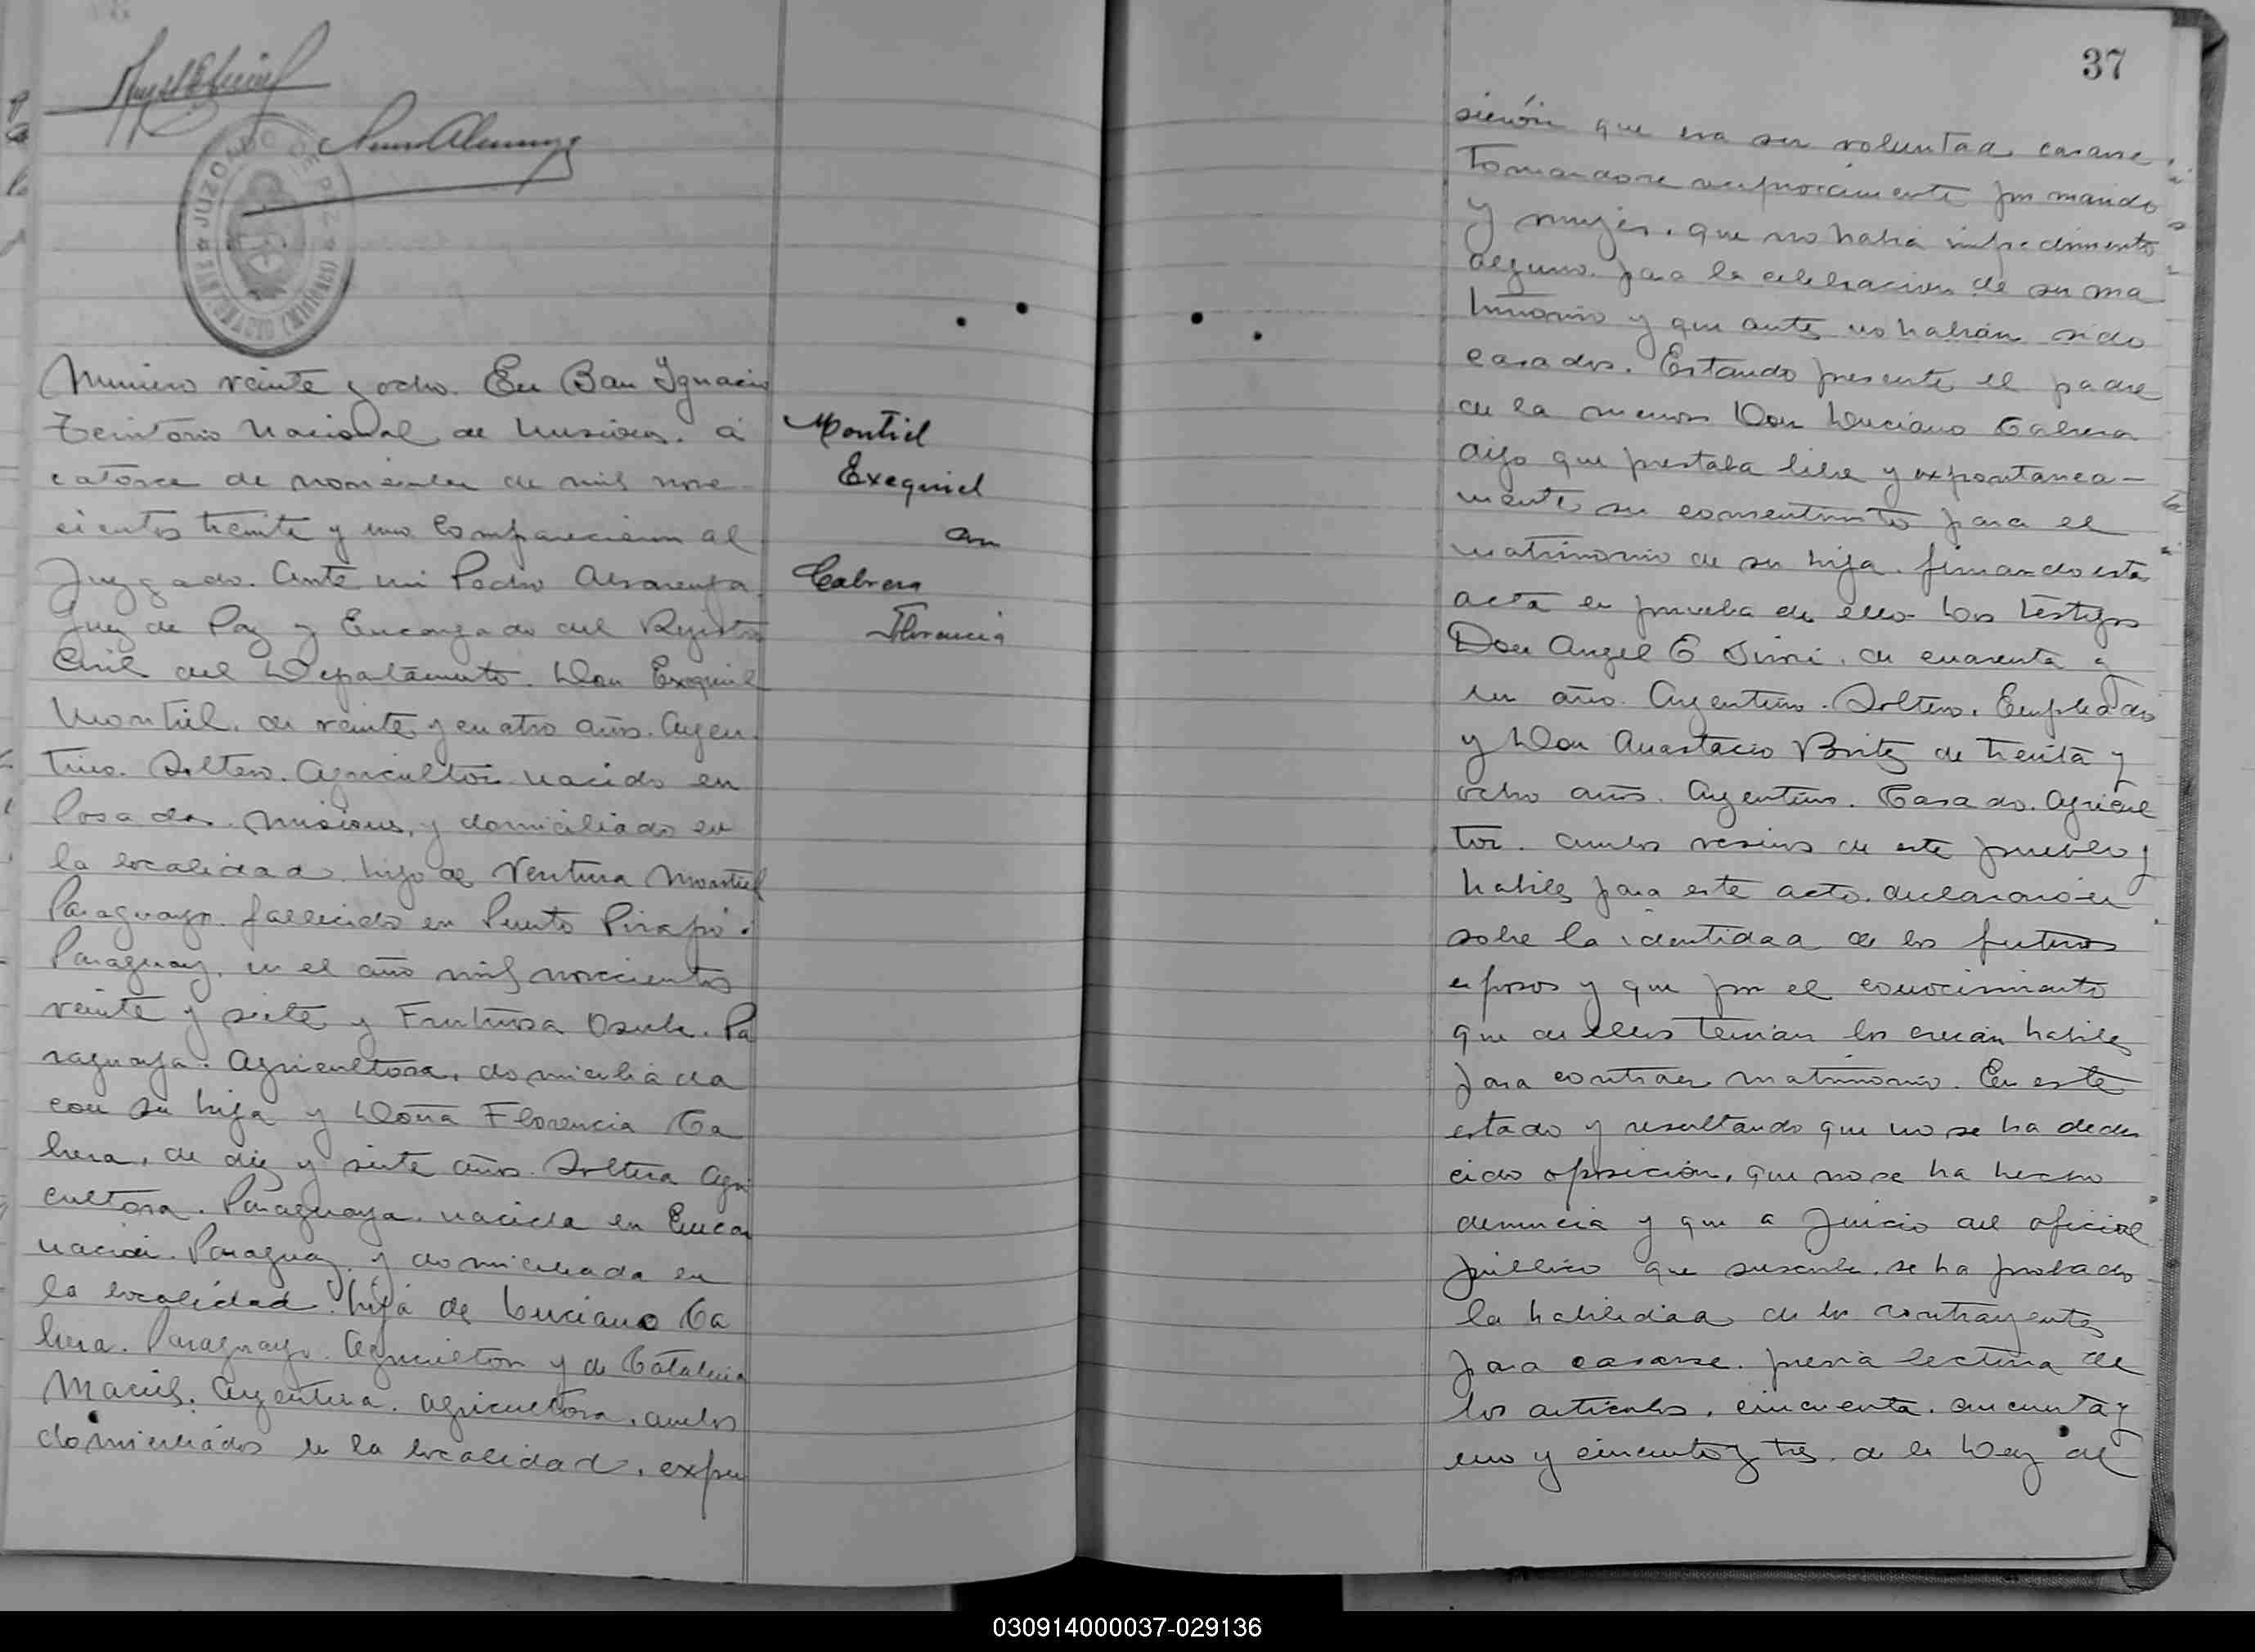 JUZGADO DE PAZ
SAN IGNACIO (MISIONES)
Numero veinte y ocho. En San Ignacio
Territorio Nacional de Misiones. a
catorce de noviembre de mil nove
cientos treinta y uno Comparecieron al
Juzgado. Ante mi Pedro Alvarenga
Juez de Paz y Encargado del Registro
Civil del Departamento. Don Exequiel
Montiel. de veinte y cuatro años. Argen
tino. Soltero. Agricultor nacido en
Posadas. Misiones, y domiciliado en
la localidad. hijo de Ventura Montiel
Paraguayo. fallecido en Puerto Pirapó.
Paraguay. en el año mil novecientos
veinte y siete y Frutuosa Pa
raguaya. Agricultora, domiciliada
con su hija y Doña Florencia Ca
brera, de diez y siete años. Soltera Agri
cultora. Paraguaya. nacida en Encar
nación. Paraguay. y domiciliada en
la localidad. hija de Luciano Ca
brera. Paraguayo. Agricultor y de Catalina
Maciel. Argentina. agricultora. ambos
domiciliados en la localidad. expu
Montiel
Exequiel
con
Cabrera
Florencia
37
sieron que era su voluntad casarse.
Tomandose reciprocamente por marido
y mujer. que no había impedimento
alguno. para la celebracion de su ma
trimonio y que antes no habian sido
casados. Estando presente el padre
de la menor Don Luciano Cabrera
dijo que prestaba libre y expontanea-
mente su consentimto para el
matrimonio de su hija. firmando esta
acta en prueba de ello. Los testigos
Don Angel E de cuarenta y
un año. Argentino. Soltero. Empleado
y Don Anastacio Britez de treinta y
ocho años. Argentino. Casado. Agricul
tor. ambos vesinos de este pueblo y
habiles para este acto. declararon
sobre la identidad de los futuros
esposos y que por el conocimiento
que de ellos tenian los creian habiles
para contraer matrimonio. En este
estado y resultando que no se ha dedu
cido oposición, que no se ha hecho
denuncia y que a Juicio del oficial
público que suscribe. se ha probado
la habilidad de los contrayentes
para casarse. previa lectura de
los articulos. cincuenta. cincuenta y
uno y cincuenta y tres. de la Ley de
030914000037-029136